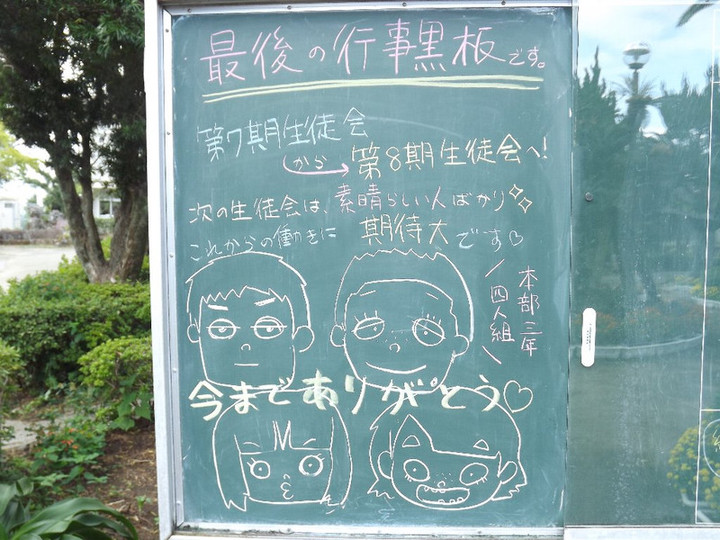 最後の行事黒板です。
第7期生徒会
から
第8期生徒会へ!
次の生徒会は、素晴らしい人ばかり
これからの働きに 期待大です♡
本部三年
四人組
今までありがとう♡